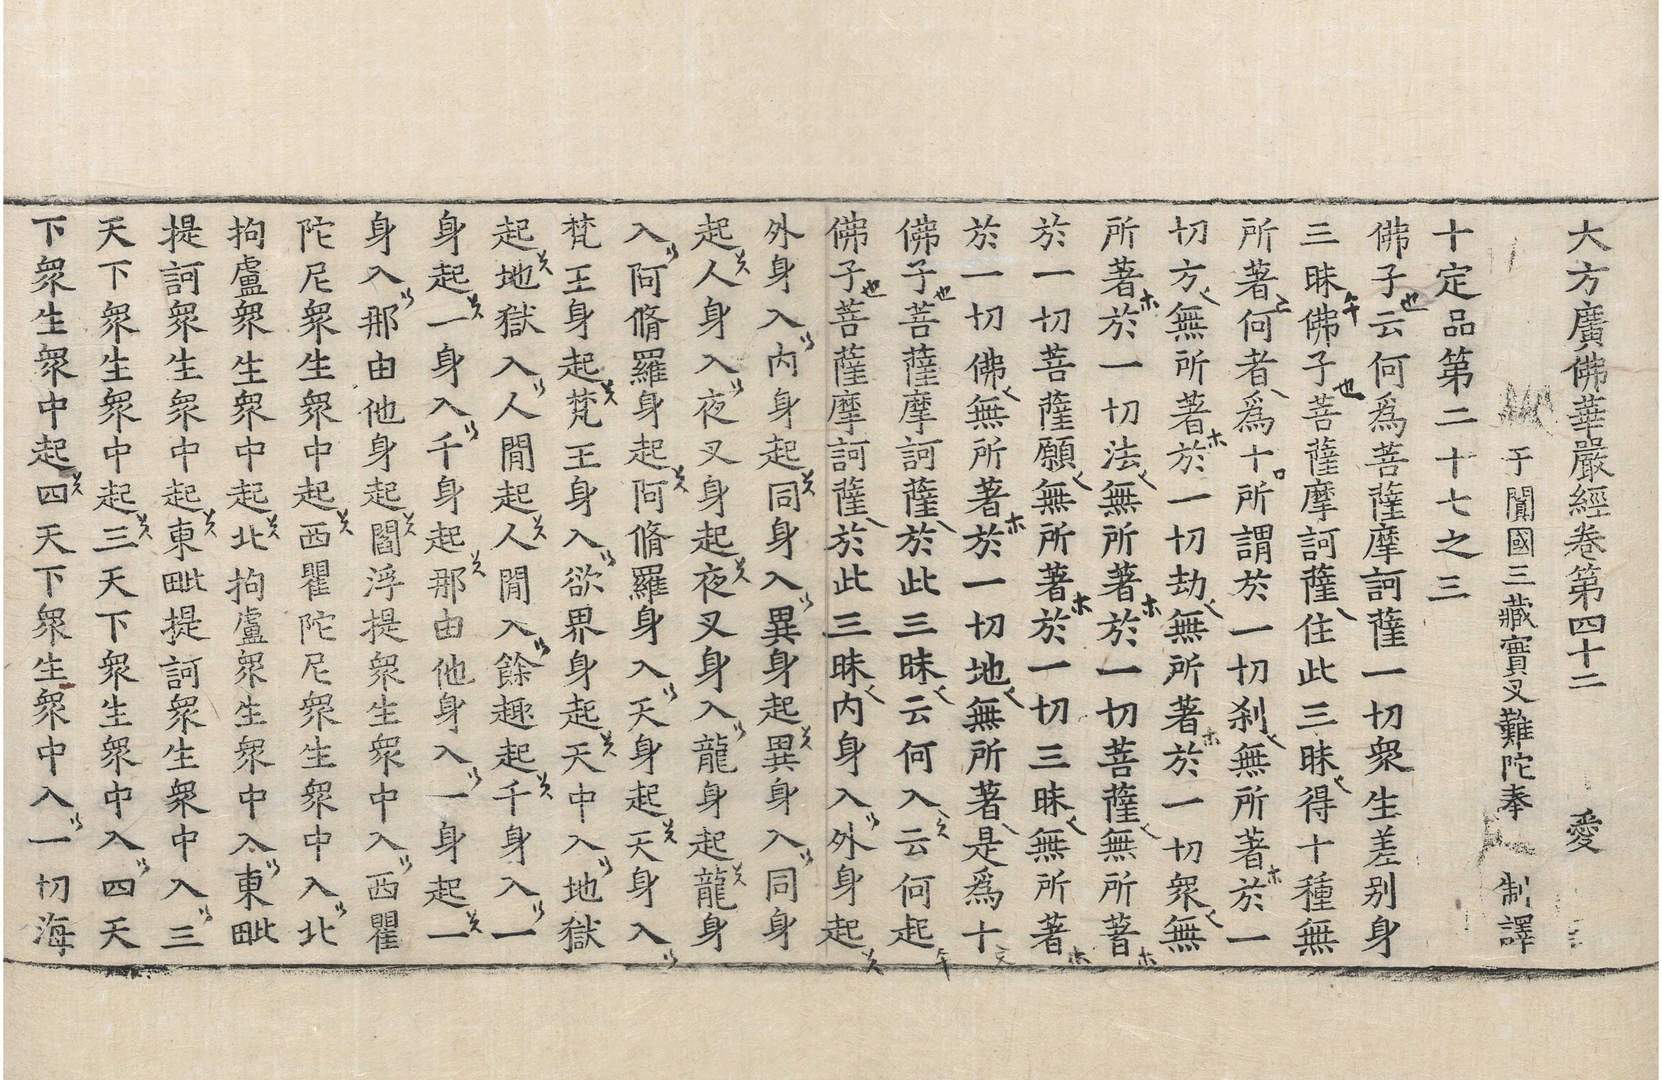 大方廣佛華嚴經卷第四十二 愛
于闐國三藏實叉難陀奉 制譯
十定品第二十七之三
佛子云何爲菩薩摩訶薩一切衆生差別身
三昧佛子菩薩摩訶薩住此三昧得十種無
所著何者爲十所謂於一切刹無所著於一
切方無所著於一切劫無所著於一切衆無
所著於一切法無所著於一切菩薩無所著
於一切菩薩願無所著於一切三昧無所著
於一切佛無所著於一切地無所著是爲十
佛子菩薩摩訶薩於此三昧云何入云何起
佛子菩薩摩訶薩於此三昧內身入外身起
外身入內身起同身入異身起異身入同身
起人身入夜叉身起夜叉身入龍身起龍身
入阿脩羅身起阿脩羅身入天身起天身入
梵王身起梵王身入欲界身起天中入地獄
起地獄入人閒起人閒入餘趣起千身入一
身起一身入千身起那由他身入一身起一
身入那由他身起閻浮提衆生衆中入西瞿
陀尼衆生衆中起西瞿陀尼衆生衆中入北
拘盧衆生衆中起北拘盧衆生衆中入東毗
提訶衆生衆中起東毗提訶衆生衆中入三
天下衆生衆中起三天下衆生衆中入四天
下衆生衆中起四天下衆生衆中入一切海